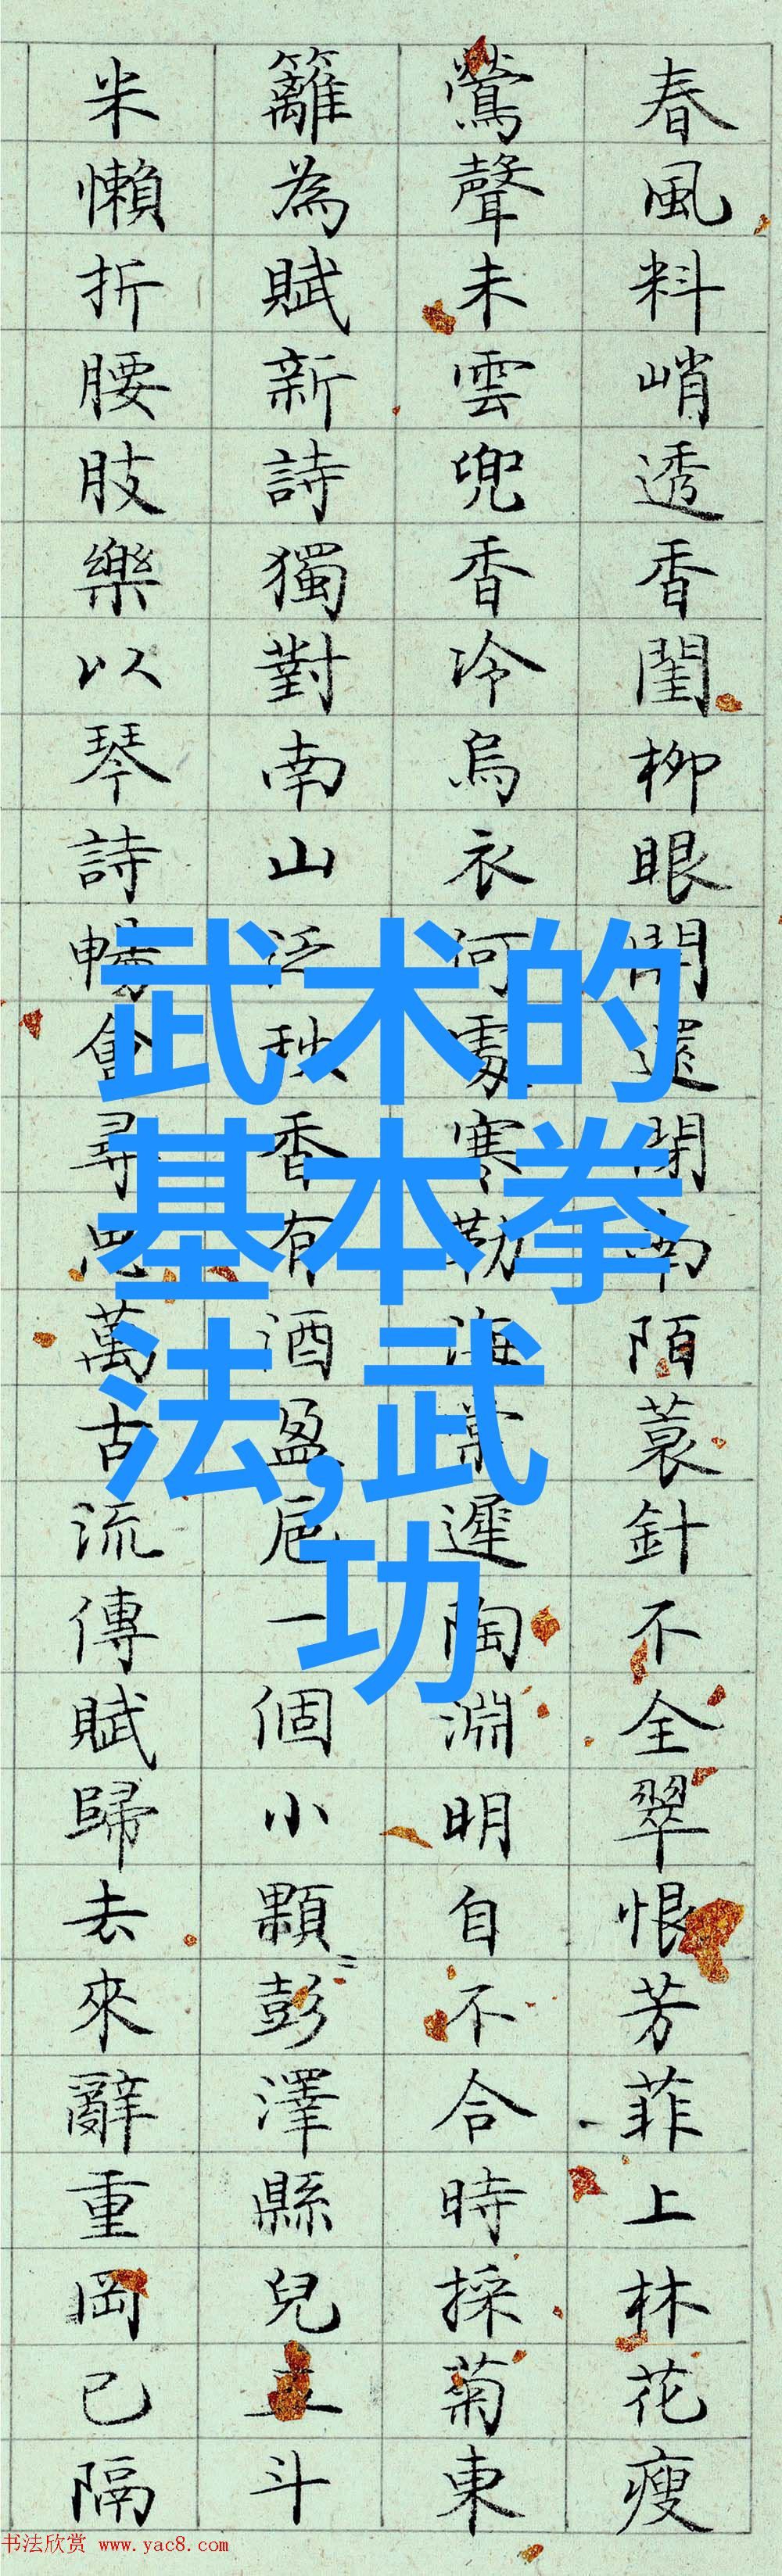 春風料峭透香閨柳眼開還閉南陌蓑針不全翠恨芳菲上林花瘦
鶯聲未雲兜香冷烏衣何處寒勒海棠遲陶淵明自不合時採菊東
籬為賦新詩獨對南山泛秋香有酒盈卮一個小顆〻彭澤縣兒五斗
米懶折腰肢樂以琴詩暢會尋思萬古流傳賦歸去來辭重岡已隔
武术的
基本拳
法,武
功
书法欣赏 www.yac8.com